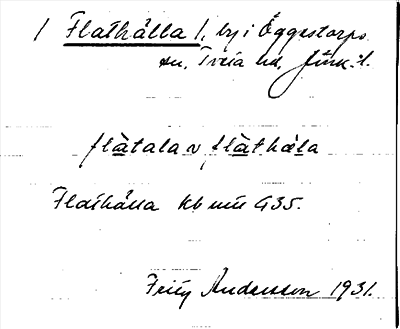 / Flathålla /, by i Öggestorps
sn, Tveta hd, Jönk. l.
flàtala v flàthåla
Flathålla kb 435.
Fritz Andersson 1931.